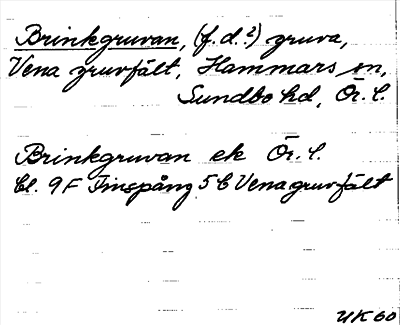 Brinkgruvan, (f.d.?) gruva,
Vena gruvfält, Hammars sn,
Sundbo hd, Ör. l.
Brinkgruvan ek Ör. l.
bl. 9F Finspång 5C Vena gruvfält
UK60